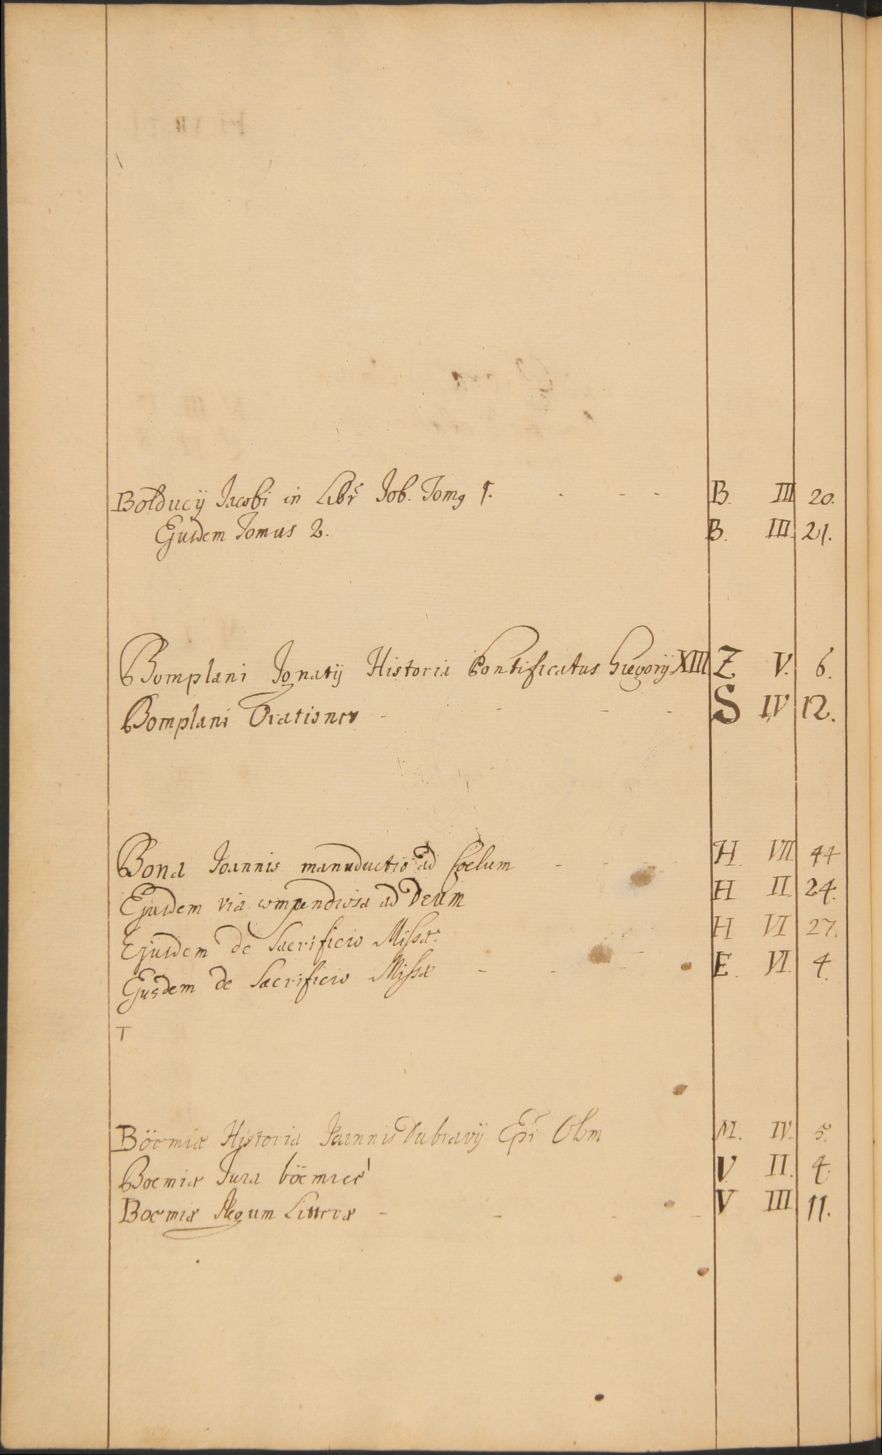 Bolducÿ Jacobi in Libr Job. Tomg 1. - - - B. III 20.
Ejusdem Tomus 2. B. III. 21.
Bomplani Ignatij Historia Pontificatus Gregorij XIII Z V. 6.
Bomplani Orationes - - - - S IV 12.
Bona Joannis manuductio ad Coelum - - - H VII 44
Ejusdem via compendiosa ad Deum H II 24.
Ejusdem de Sacrificio Missæ. H VI 27.
Ejusdem de Sacrificio Missæ - - - E. VI. 4.
T
Böemiæ Historia Joannis Dubravij Epī Olom M. IV. 5.
Boemiæ Jura böemicè V II. 4.
Boemiæ Regum Litteræ - - - - V III 11.